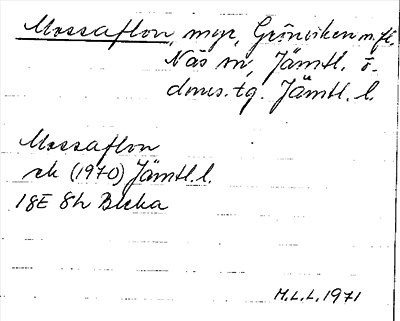 Mossaflon, myr, Grönviken m.fl.
Näs sn, Jämtl. ö.
doms.tg. Jämtl. l.
Mossaflon
ek (1970) Jämtl. l.
18E 8h Bleka
M.L.L. 1971